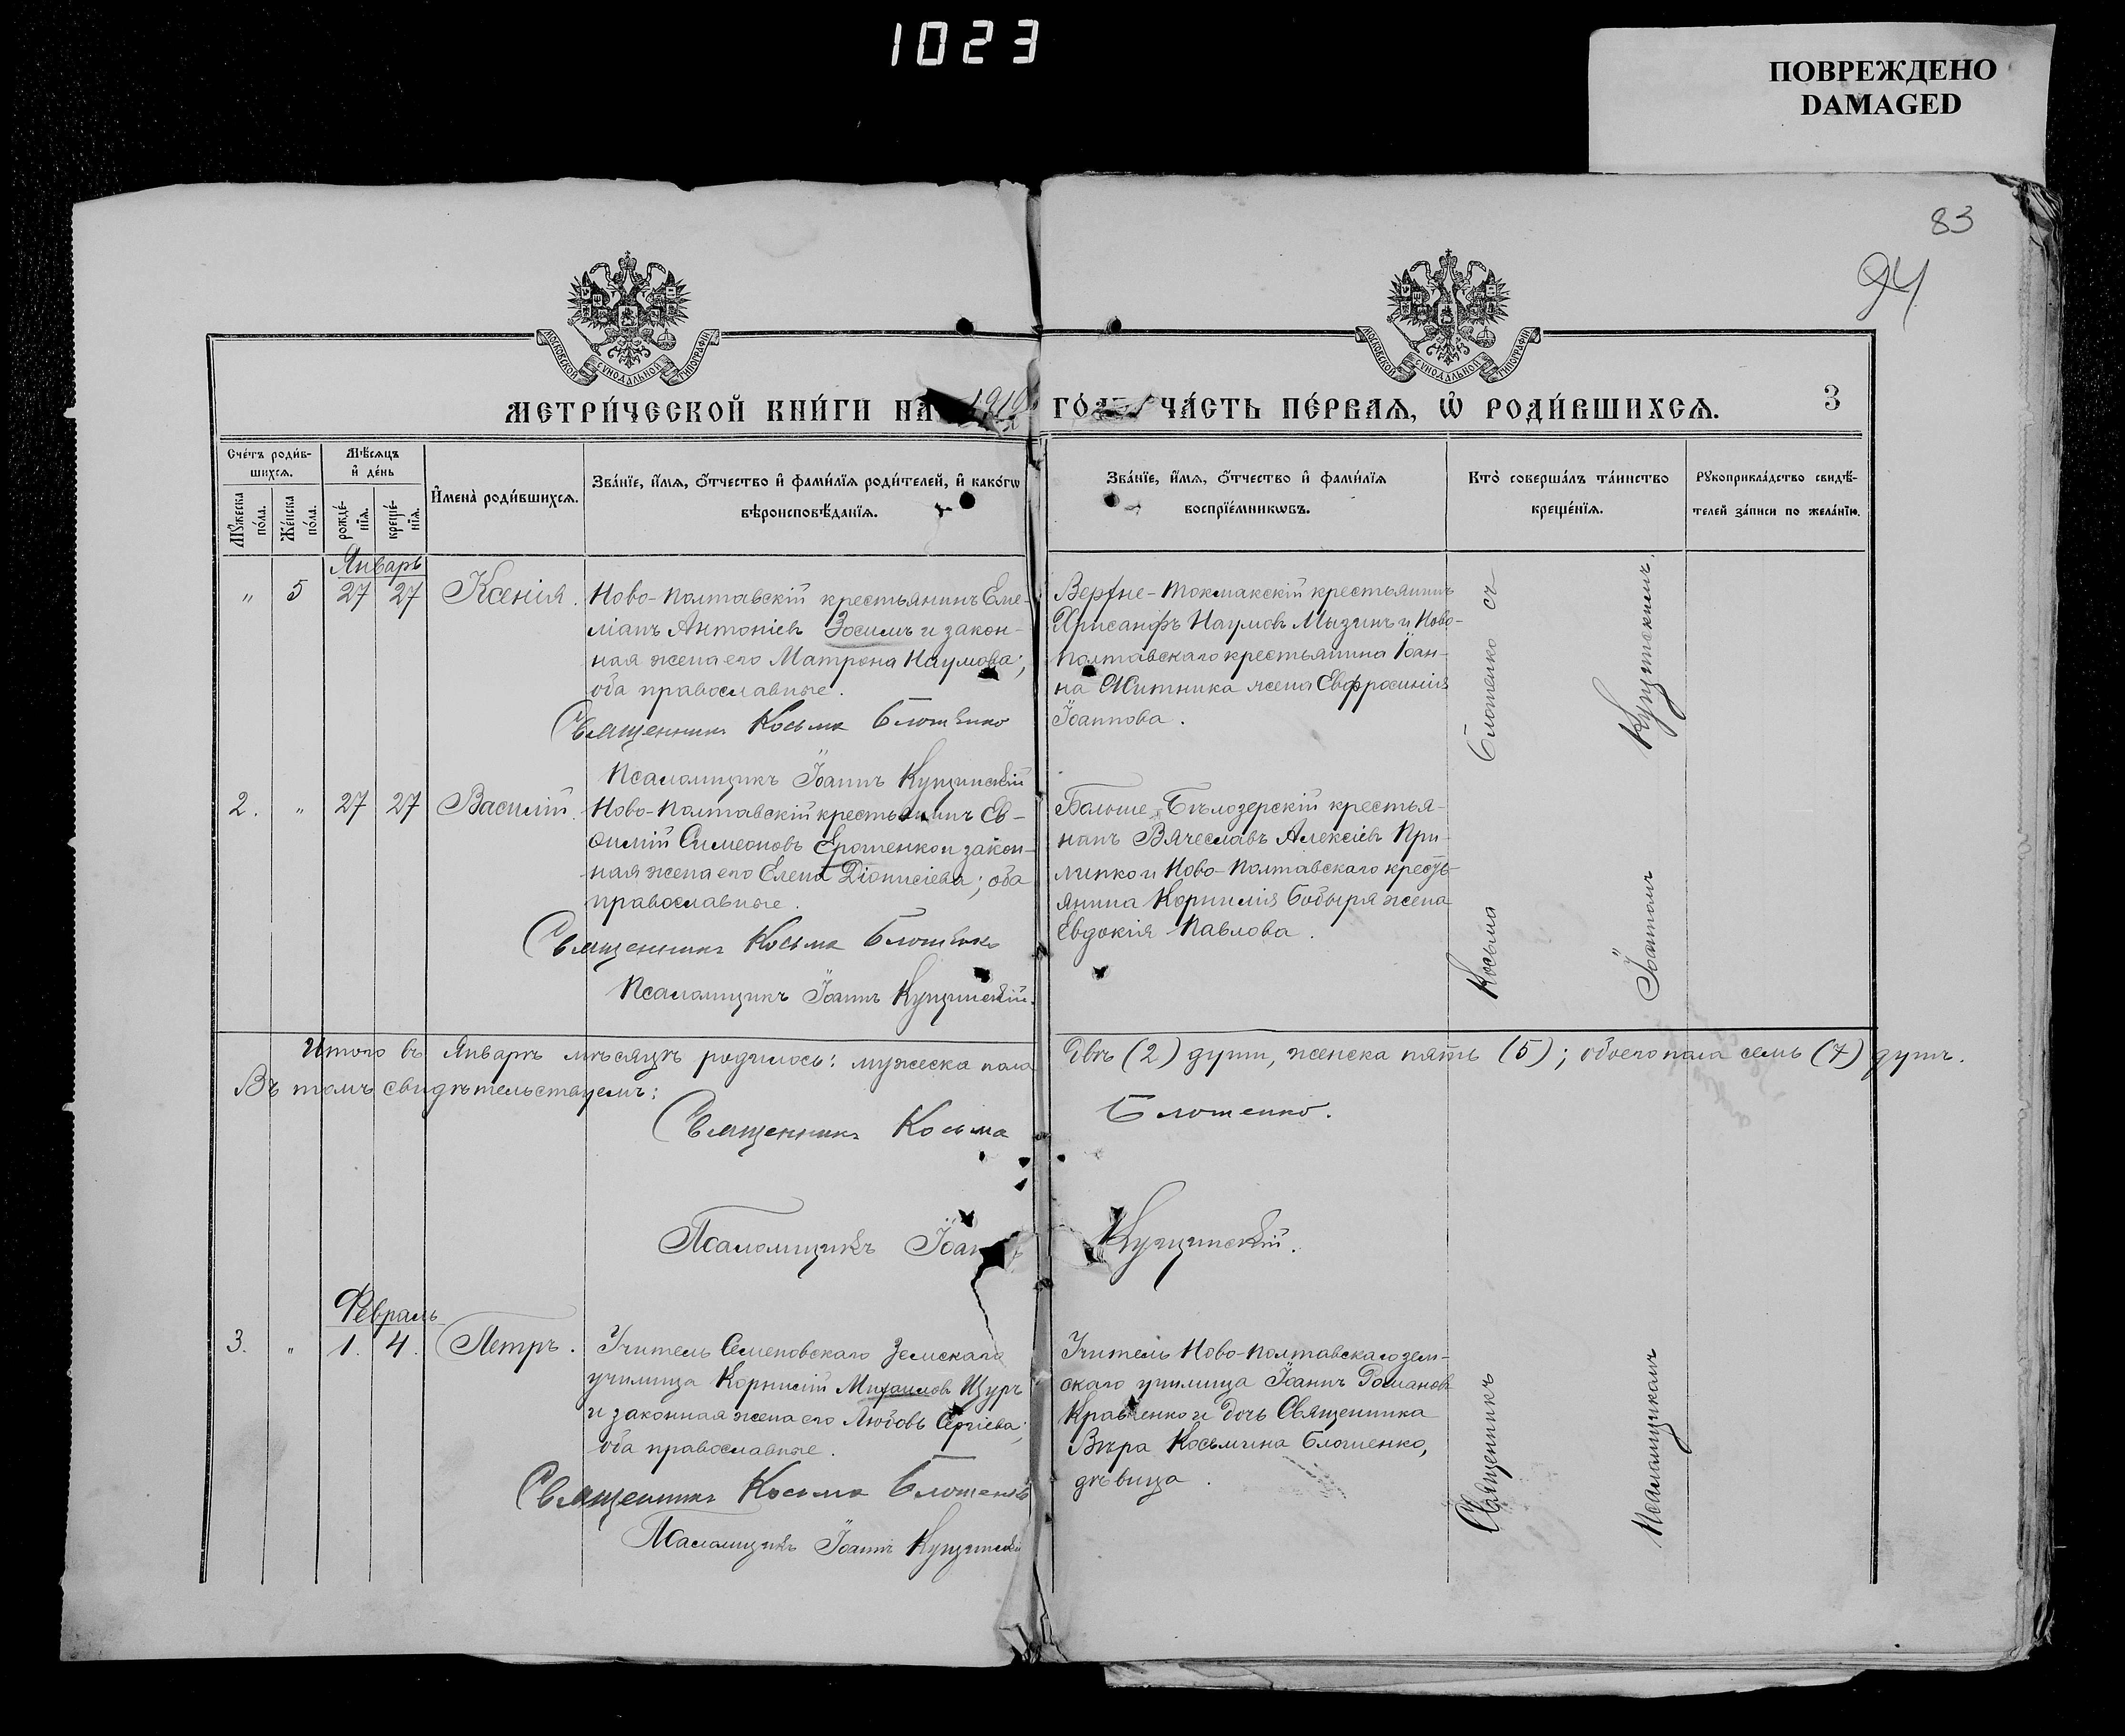 1023
ПОВРЕЖДЕНО
DAMAGED
83
94
МОСКОВСКОЙ СѴНОДАЛЬНОЙ ТИПОГРАФІИ
МОСКОВСКОЙ СѴНОДАЛЬНОЙ ТИПОГРАФІИ
МЕТРИ́ЧЕСКОЙ КНИ́ГИ НА
ГО́ ЧА́СТЬ ПЕ́РВАѦ, Ѡ҆ РОДИ́ВШИХСѦ.
3
Сче́тъ роди́в-
шихсѧ.
Мѣ́сѧцъ
и҆ де́нь
Мꙋ́жеска
по́ла.
Же́нска
по́ла.
рожде́-
нїѧ.
креще́-
нїѧ.
И҆мена̀ роди́вшихсѧ.
Зва́нїе, и҆́мѧ, ѻ҆́тчество и҆ фами́лїѧ роди́телей, и҆ како́гѡ
вѣроисповѣ́данїѧ.
Зва́нїе, и҆́мѧ, ѻ҆́тчество и҆ фами́лїѧ
воспрїе́мникѡвъ.
Кто̀ соверша́лъ та́инство
креще́нїѧ.
Рꙋкоприкла́дство свидѣ́-
телей за́писи по жела́нїю.
Январь
" 5 27 27 Ксенія.
Ново-Полтавскій крестьянинъ Еме-
ліанъ Антоніевъ Зосимъ и закон-
ная жена его Матрона Наумова;
оба православные.
Священникъ Косьма Блошенко
Псаломщикъ Іоаннъ Кущинскій
Верхне-Токмакскій крестьянинъ
Хрисанфъ Наумовъ Мызинъ и Ново-
полтавскаго крестьянина Іоан-
на Житника жена Евфросинія
Іоаннова.
2. " 27 27 Василій.
Ново-Полтавскій крестьянинъ Ев-
ѳимій Симеоновъ Ерошенко и закон-
ная жена его Елена Діонисіева; оба
православные.
Священникъ Косьма Блошенко
Псаломщикъ Іоаннъ Кущинскій.
Больше-Бѣлозерскій крестья-
нинъ Вячеславъ Алексіевъ При-
липко и Ново-Полтавскаго кресть-
янина Корнилія Бобыря жена
Евдокія Павлова.
Итого въ Январѣ мѣсяцѣ родилось: мужеска пола
Двѣ (2) души, женска пять (5); обоего пола семь (7) душъ.
Въ томъ свидѣтельствуемъ:
Священникъ Косьма
Блошенко.
Псаломщикъ Іоаннъ
Кущинскій.
Февраль
3. " 1. 4. Петръ.
Учитель Семеновскаго Земскаго
училища Корнилій Михаиловъ Щуръ
и законная жена его Любовь Сергіева;
оба православные.
Священникъ Косьма Блошенко
Псаломщикъ Іоаннъ Кущинскій
Учитель Ново-Полтавскаго зем-
скаго училища Іоаннъ Романовъ
Кравченко и дочь Священника
Вѣра Косьмина Блошенко,
дѣвица.
Священникъ Косьма Блошенко съ
Псаломщикомъ Іоанномъ Кущинскимъ.